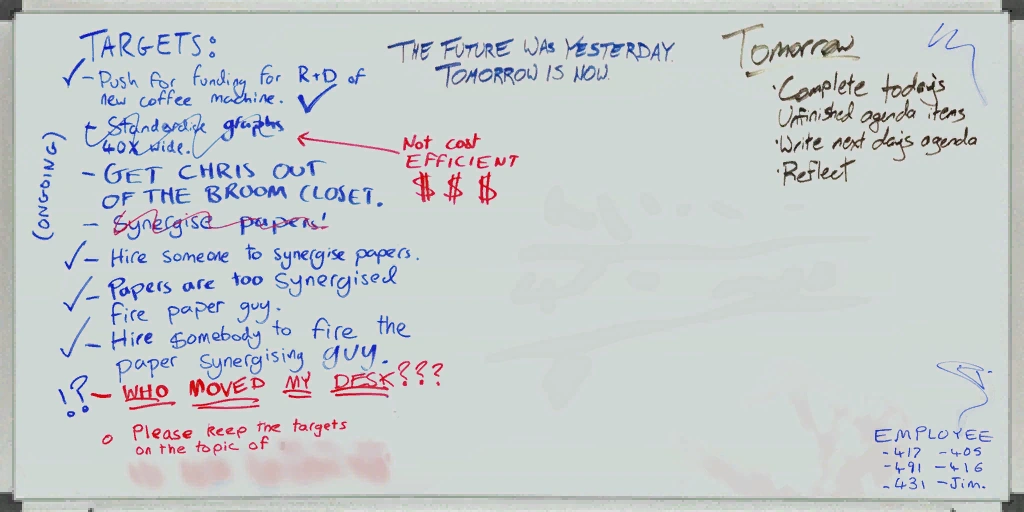 TARGETS:
- Push for funding for R+D of
new coffee machine.
- Standardise graphs
40x wide.
Not cost
EFFICIENT
$ $ $
(ONGOING)
- GET CHRIS OUT
OF THE BROOM CLOSET.
- Synergise papers!
- Hire someone to synergise papers.
- Papers are too Synergised
fire paper guy.
- Hire somebody to fire the
paper synergising guy.
!? - WHO MOVED MY DESK???
o Please keep the targets
on the topic of
THE FUTURE WAS YESTERDAY.
TOMORROW IS NOW.
Tomorrow
· Complete today's
Unfinished agenda items
· Write next day's agenda
· Reflect
EMPLOYEE
- 417 - 405
- 491 - 416
- 431 - Jim.